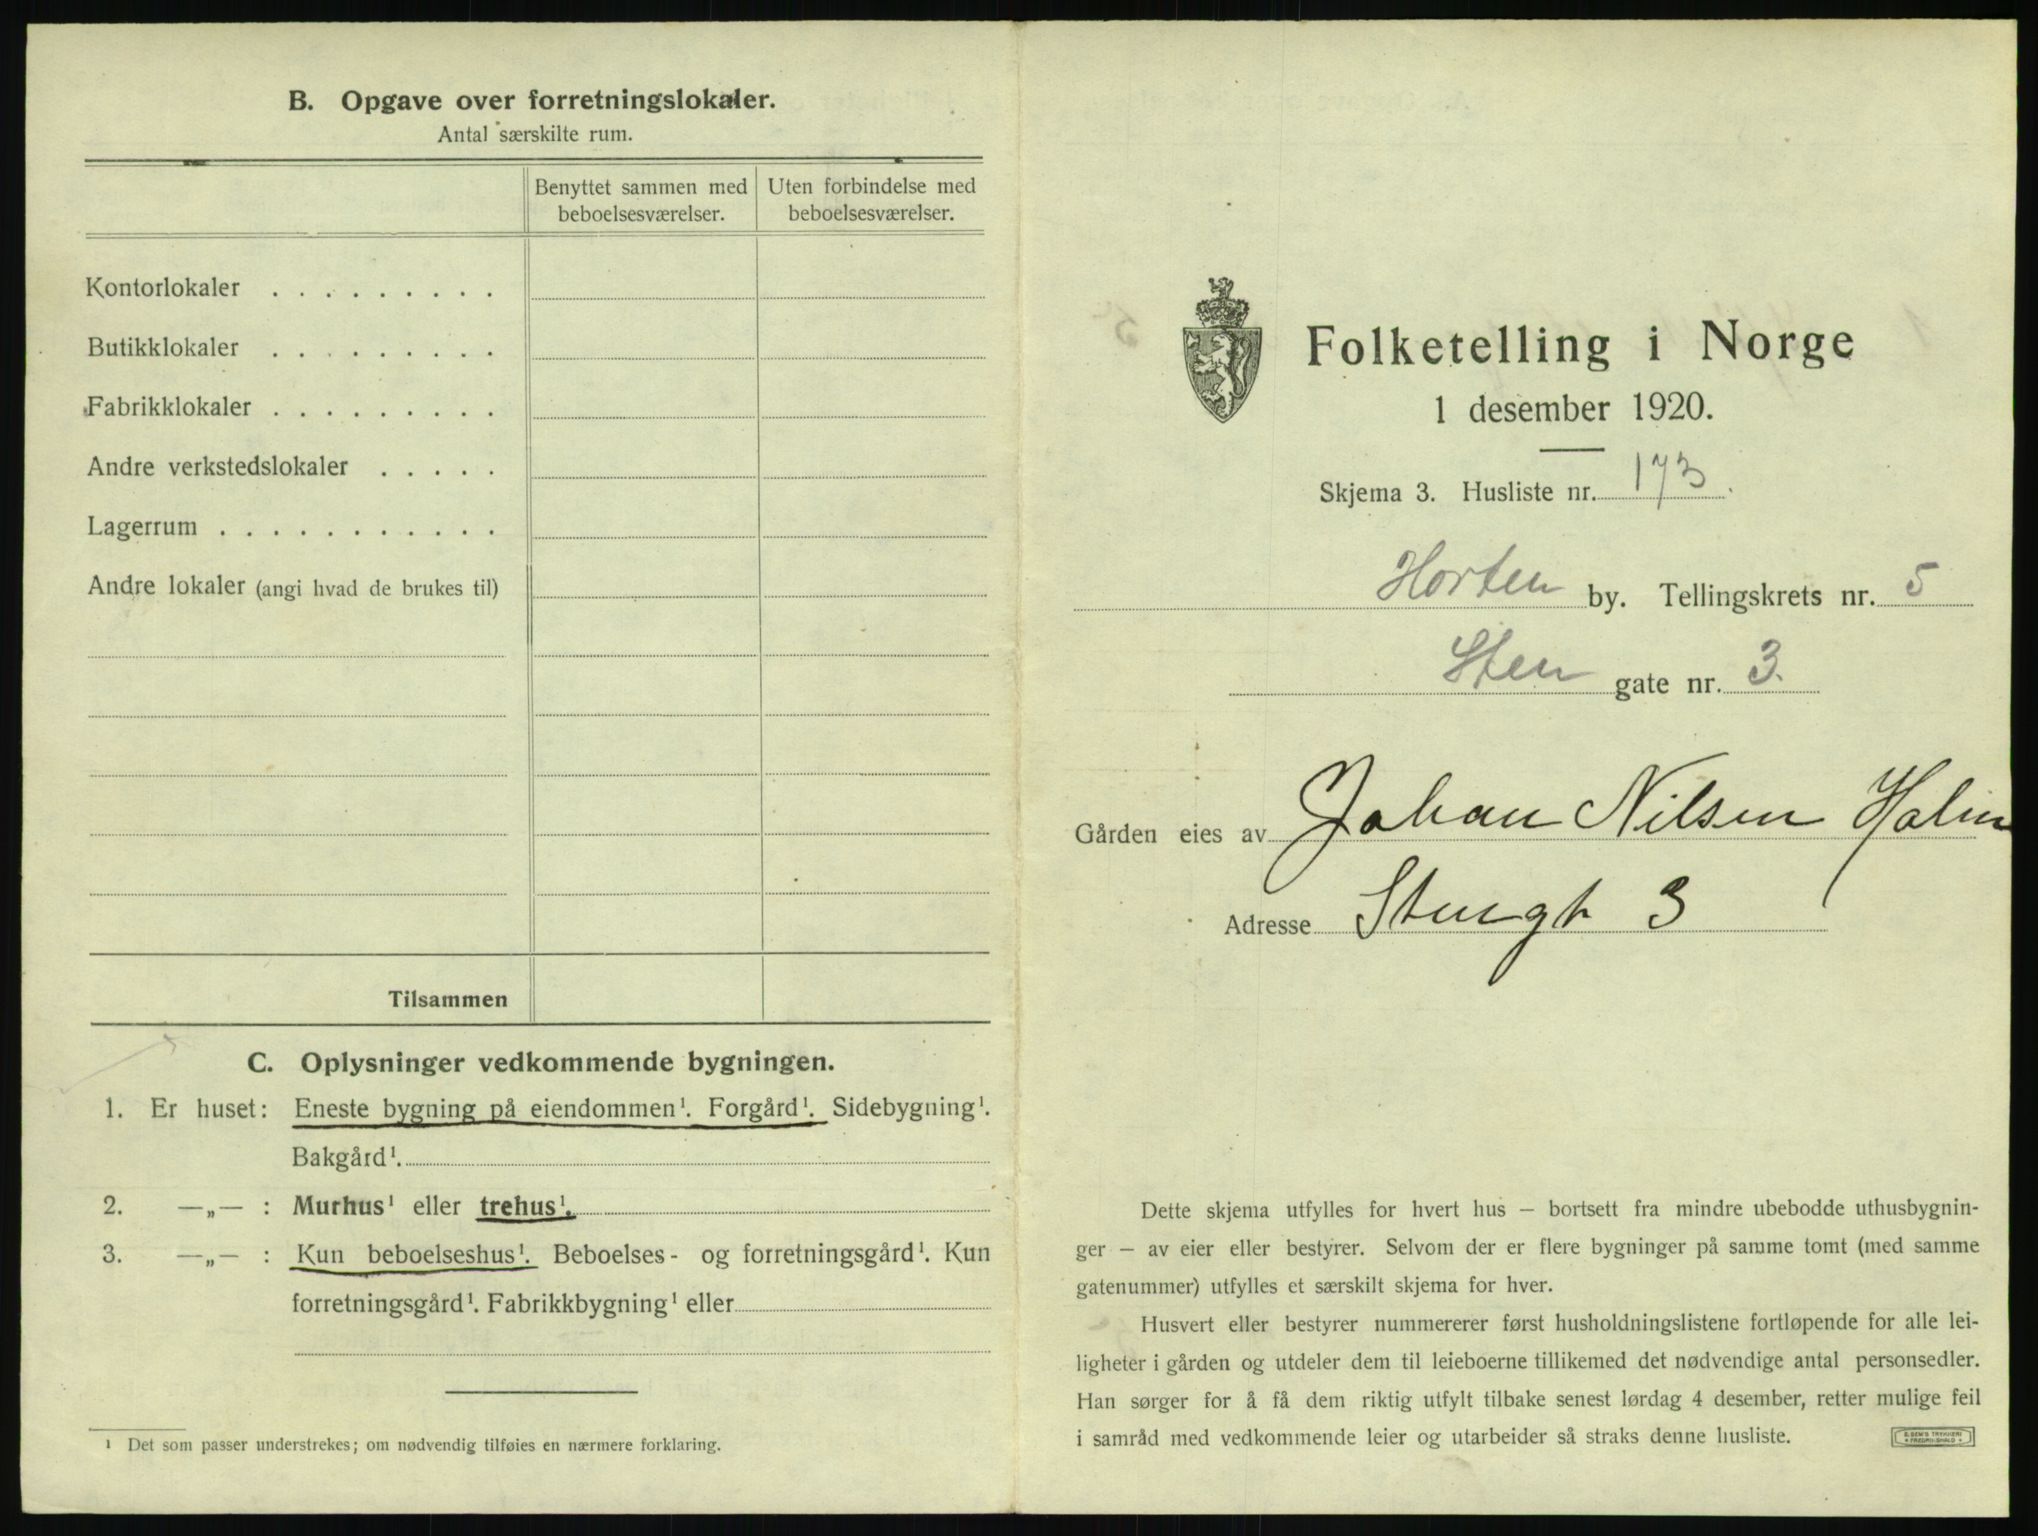 B. Opgave over forretningslokaler.
Antal særskilte rum.
Benyttet sammen med beboelsesværelser.
Uten forbindelse med beboelsesværelser.
Kontorlokaler . . . . . . . . .
Butikklokaler . . . . . . . . .
Fabrikklokaler . . . . . . . . .
Andre verkstedslokaler . . . . .
Lagerrum . . . . . . . . . . .
Andre lokaler (angi hvad de brukes til)
Tilsammen
C. Oplysninger vedkommende bygningen.
1. Er huset: Eneste bygning på eiendommen¹. Forgård¹. Sidebygning¹.
Bakgård¹.
2. —„— : Murhus¹ eller trehus¹.
3. —„— : Kun beboelseshus¹. Beboelses- og forretningsgård¹. Kun
forretningsgård¹. Fabrikkbygning¹ eller
¹ Det som passer understrekes; om nødvendig tilføies en nærmere forklaring.
Folketelling i Norge
1 desember 1920.
Skjema 3. Husliste nr. 173.
Horten by. Tellingskrets nr. 5
Sten gate nr. 3.
Gården eies av Johan Nilsen Holm
Adresse Stengt 3
Dette skjema utfylles for hvert hus — bortsett fra mindre ubebodde uthusbygnin-
ger — av eier eller bestyrer. Selvom der er flere bygninger på samme tomt (med samme
gatenummer) utfylles et særskilt skjema for hver.
Husvert eller bestyrer nummererer først husholdningslistene fortløpende for alle lei-
ligheter i gården og utdeler dem til leieboerne tillikemed det nødvendige antal personsedler.
Han sørger for å få dem riktig utfylt tilbake senest lørdag 4 desember, retter mulige feil
i samråd med vedkommende leier og utarbeider så straks denne husliste.